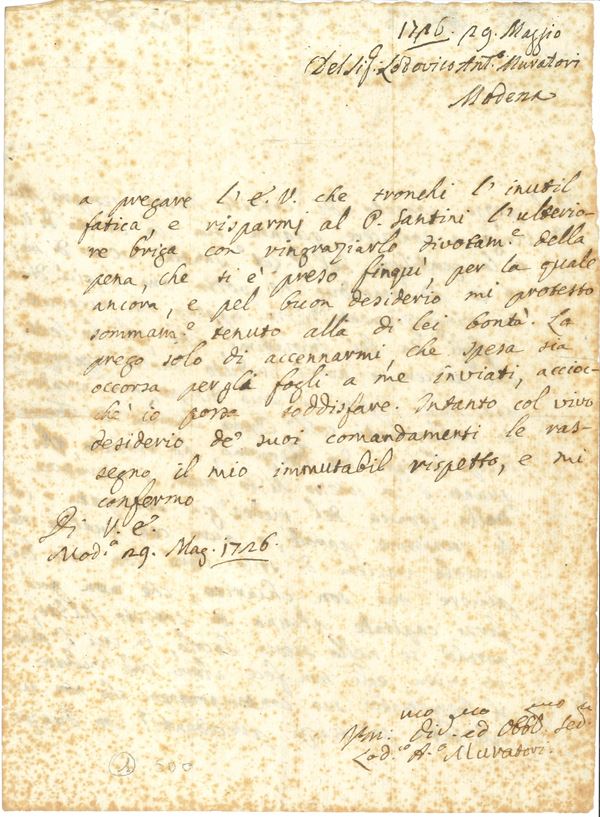 1726. 29. Maggio
Del Sig. Lodovico Ant.º Muratori
Modena
a pregare l' E. V. che tronchi l' inutil
fatica, e risparmi al P. Santini l'ulterio-
re briga con ringraziarlo divotam.e della
pena, che si è preso finquì, per la quale
ancora, e pel buon desiderio mi protesto
sommam.e tenuto alla di lei bontà. La
prego solo di accennarmi, che spesa sia
occorsa per gli fogli a me inviati, accioc-
chè io possa soddisfare. Intanto col vivo
desiderio de' suoi comandamenti le ras-
segno il mio immutabil rispetto, e mi
confermo
Di V. E.
Mod.a 29. Mag. 1726.
Um.mo Div.mo ed Obbl.mo Ser.
Lod.co A.o Muratori.
500